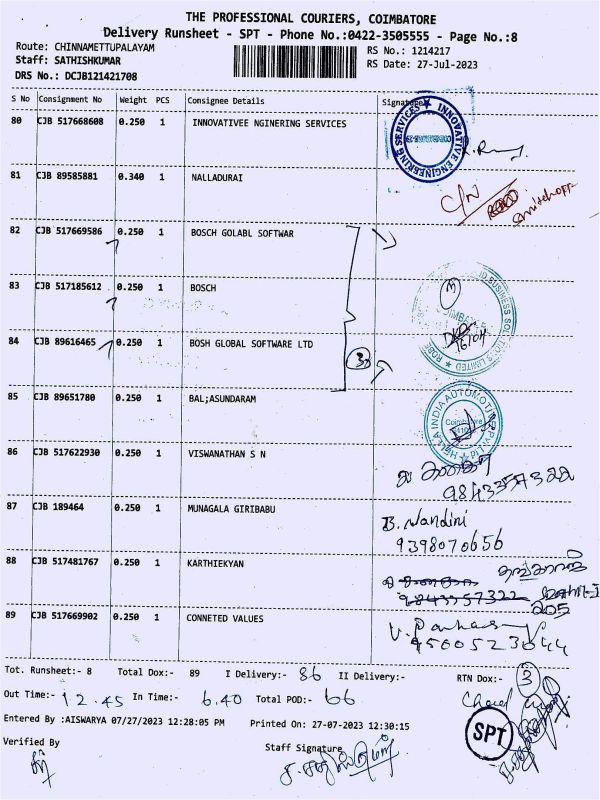 THE PROFESSIONAL COURIERS, COIMBATORE
Delivery Runsheet - SPT - Phone No.:0422-3505555 - Page No.:8
Route: CHINNAMETTUPALAYAM
RS No.: 1214217
Staff: SATHISHKUMAR
RS Date: 27-Jul-2023
DRS No.: DCJB121421708
S No Consignment No Weight PCS Consignee Details Signature
80 CJB 517668608 0.250 1 INNOVATIVEE NGINERING SERVICES
INNOVATIVE ENGINEERING SERVICES
81 CJB 89585881 0.340 1 NALLADURAI
C/N
switchoff
82 CJB 517669586 0.250 1 BOSCH GOLABL SOFTWAR
83 CJB 517185612 0.250 1 BOSCH
84 CJB 89616465 0.250 1 BOSH GLOBAL SOFTWARE LTD
3
85 CJB 89651780 0.250 1 BAL;ASUNDARAM
HELLA INDIA AUTOMOTIVE PVT
86 CJB 517622930 0.250 1 VISWANATHAN S N
87 CJB 189464 0.250 1 MUNAGALA GIRIBABU
B. Nandini
9398070656
88 CJB 517481767 0.250 1 KARTHIEKYAN
9843357322
205
89 CJB 517669902 0.250 1 CONNETED VALUES
9500523044
Tot. Runsheet:- 8 Total Dox:- 89 I Delivery:- 86 II Delivery:- RTN Dox:- 3
Out Time:- 12.45 In Time:- 6.40 Total POD:- 66
Entered By :AISWARYA 07/27/2023 12:28:05 PM Printed On: 27-07-2023 12:30:15
SPT
Verified By Staff Signature